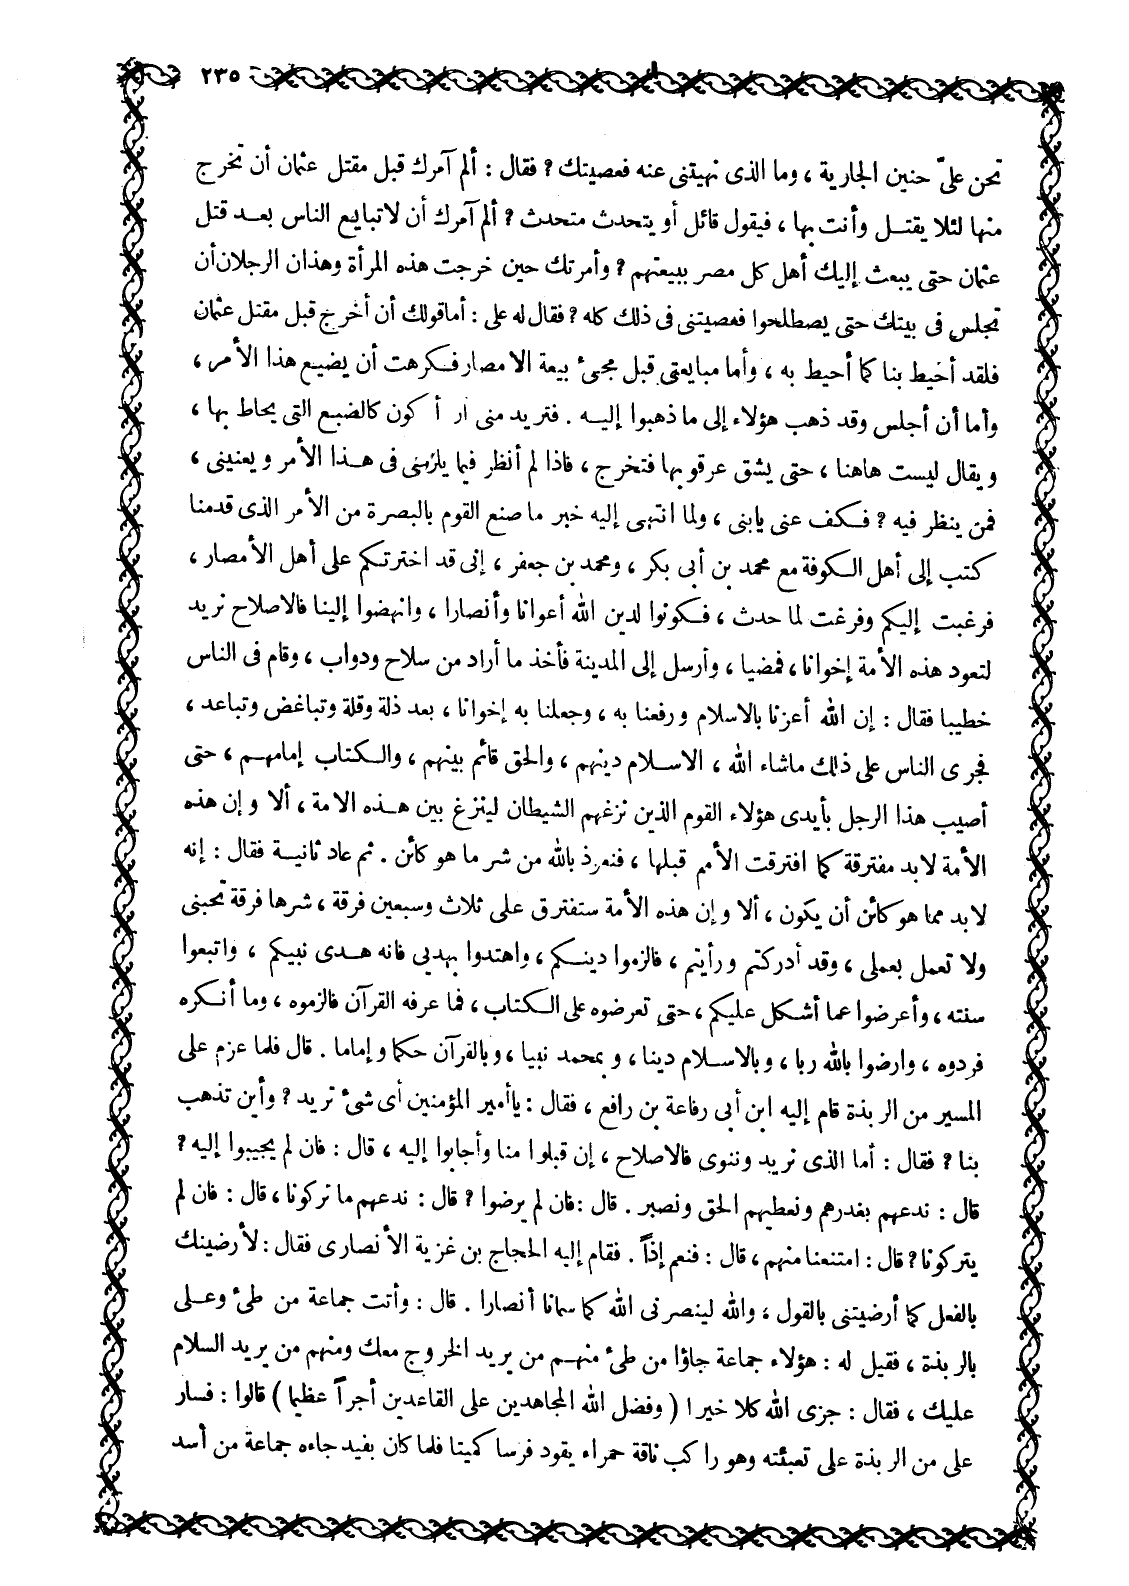 ٢٣٥
تحن علىّ حنين الجارية ، وما الذى نهيتنى عنه فعصيتك ? فقال : ألم آمرك قبل مقتل عثمان أن تخرج
منها لئلا يقتل وأنت بها ، فيقول قائل أو يتحدث متحدث ? ألم آمرك أن لا تبايع الناس بعد قتل
عثمان حتى يبعث إليك أهل كل مصر ببيعتهم ? وأمرتك حين خرجت هذه المرأة وهذان الرجلان أن
تجلس فى بيتك حتى يصطلحوا فعصيتنى فى ذلك كله ? فقال له على : أما قولك أن أخرج قبل مقتل عثمان
فلقد أحيط بنا كما أحيط به ، وأما مبايعتى قبل مجىء بيعة الامصار فكرهت أن يضيع هذا الأمر ،
وأما أن أجلس وقد ذهب هؤلاء إلى ما ذهبوا إليه . فتريد منى أن أكون كالضبع التى يحاط بها ،
ويقال ليست هاهنا ، حتى يشق عرقوبها فتخرج ، فاذا لم أنظر فيما يلزمنى فى هذا الأمر ويعنينى ،
فمن ينظر فيه ? فكف عنى يابنى ، ولما انتهى إليه خبر ما صنع القوم بالبصرة من الأمر الذى قدمنا
كتب إلى أهل الكوفة مع محمد بن أبى بكر ، ومحمد بن جعفر ، إنى قد اخترتكم على أهل الأمصار ،
فرغبت إليكم وفرغت لما حدث ، فكونوا لدين الله أعوانا وأنصارا ، وانهضوا إلينا فالاصلاح نريد
لتعود هذه الأمة إخوانا ، فمضيا ، وأرسل إلى المدينة فأخذ ما أراد من سلاح ودواب ، وقام فى الناس
خطيبا فقال : إن الله أعزنا بالاسلام ورفعنا به ، وجعلنا به إخوانا ، بعد ذلة وقلة وتباغض وتباعد ،
فجرى الناس على ذلك ماشاء الله ، الاسلام دينهم ، والحق قائم بينهم ، والكتاب إمامهم ، حتى
أصيب هذا الرجل بأيدى هؤلاء القوم الذين نزغهم الشيطان لينزغ بين هذه الامة ، ألا وإن هذه
الأمة لابد مفترقة كما افترقت الأمم قبلها ، فنعوذ بالله من شر ما هو كائن . ثم عاد ثانية فقال : إنه
لابد مما هو كائن أن يكون ، ألا وإن هذه الأمة ستفترق على ثلاث وسبعين فرقة ، شرها فرقة تحبنى
ولا تعمل بعملى ، وقد أدركتم ورأيتم ، فالزموا دينكم ، واهتدوا بهديى فانه هدى نبيكم ، واتبعوا
سنته ، وأعرضوا عما أشكل عليكم ، حتى تعرضوه على الكتاب ، فما عرفه القرآن فالزموه ، وما أنكره
فردوه ، وارضوا بالله ربا ، وبالاسلام دينا ، وبمحمد نبيا ، وبالقرآن حكما وإماما . قال فلما عزم على
المسير من الربذة قام إليه ابن أبى رفاعة بن رافع ، فقال : يا أمير المؤمنين أى شىء تريد ? وأين تذهب
بنا ? فقال : أما الذى نريد وننوى فالاصلاح ، إن قبلوا منا وأجابوا إليه ، قال : فان لم يجيبوا إليه ?
قال : ندعهم بغدرهم ونعطيهم الحق ونصبر . قال : فان لم يرضوا ? قال : ندعهم ما تركونا ، قال : فان لم
يتركونا ? قال : امتنعنا منهم ، قال : فنعم إذاً . فقام إليه الحجاج بن غزية الأنصارى فقال : لأرضينك
بالفعل كما أرضيتنى بالقول ، والله لينصرنى الله كما سمانا أنصارا . قال : وأتت جماعة من طىء وعلى
بالربذة ، فقيل له : هؤلاء جماعة جاؤا من طىء منهم من يريد الخروج معك ومنهم من يريد السلام
عليك ، فقال : جزى الله كلا خيرا ( وفضل الله المجاهدين على القاعدين أجراً عظيما ) قالوا : فسار
على من الربذة على تعبئته وهو راكب ناقة حمراء يقود فرسا كميتا فلما كان بفيد جاءه جماعة من أسد